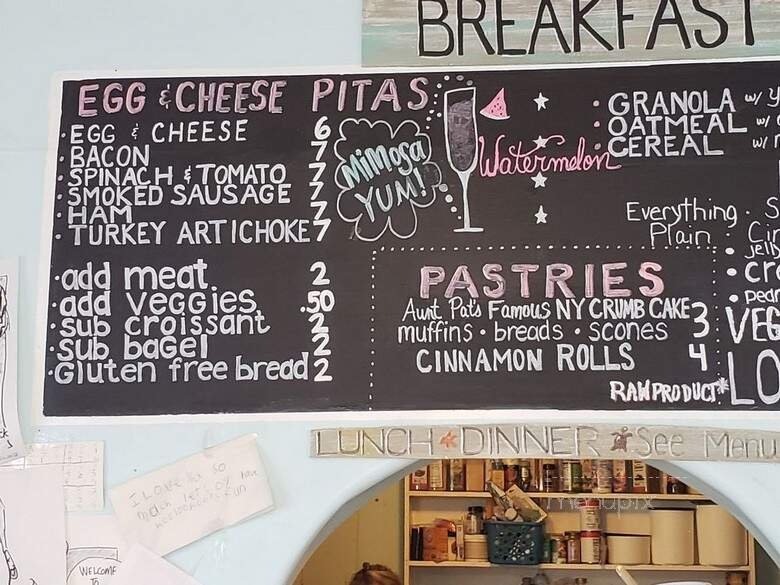 BREAKFAST
EGG & CHEESE PITAS
· EGG & CHEESE 6
· BACON 7
· SPINACH & TOMATO 7
· SMOKED SAUSAGE 7
· HAM 7
· TURKEY ARTICHOKE 7
· add meat 2
· add veggies .50
· sub croissant 2
· sub bagel 2
· Gluten free bread 2
Mimosa
YUM!
Watermelon
· GRANOLA w/ Y
· OATMEAL w/
· CEREAL w/
Everything · S
Plain · Cin
· jelly
· cr
· pean
VEG
LO
PASTRIES
Aunt Pat's Famous NY CRUMB CAKE 3
muffins · breads · scones
CINNAMON ROLLS 4
RAW PRODUCT*
LUNCH DINNER See Menu
I Love it so
WELCOME
TO
menupix